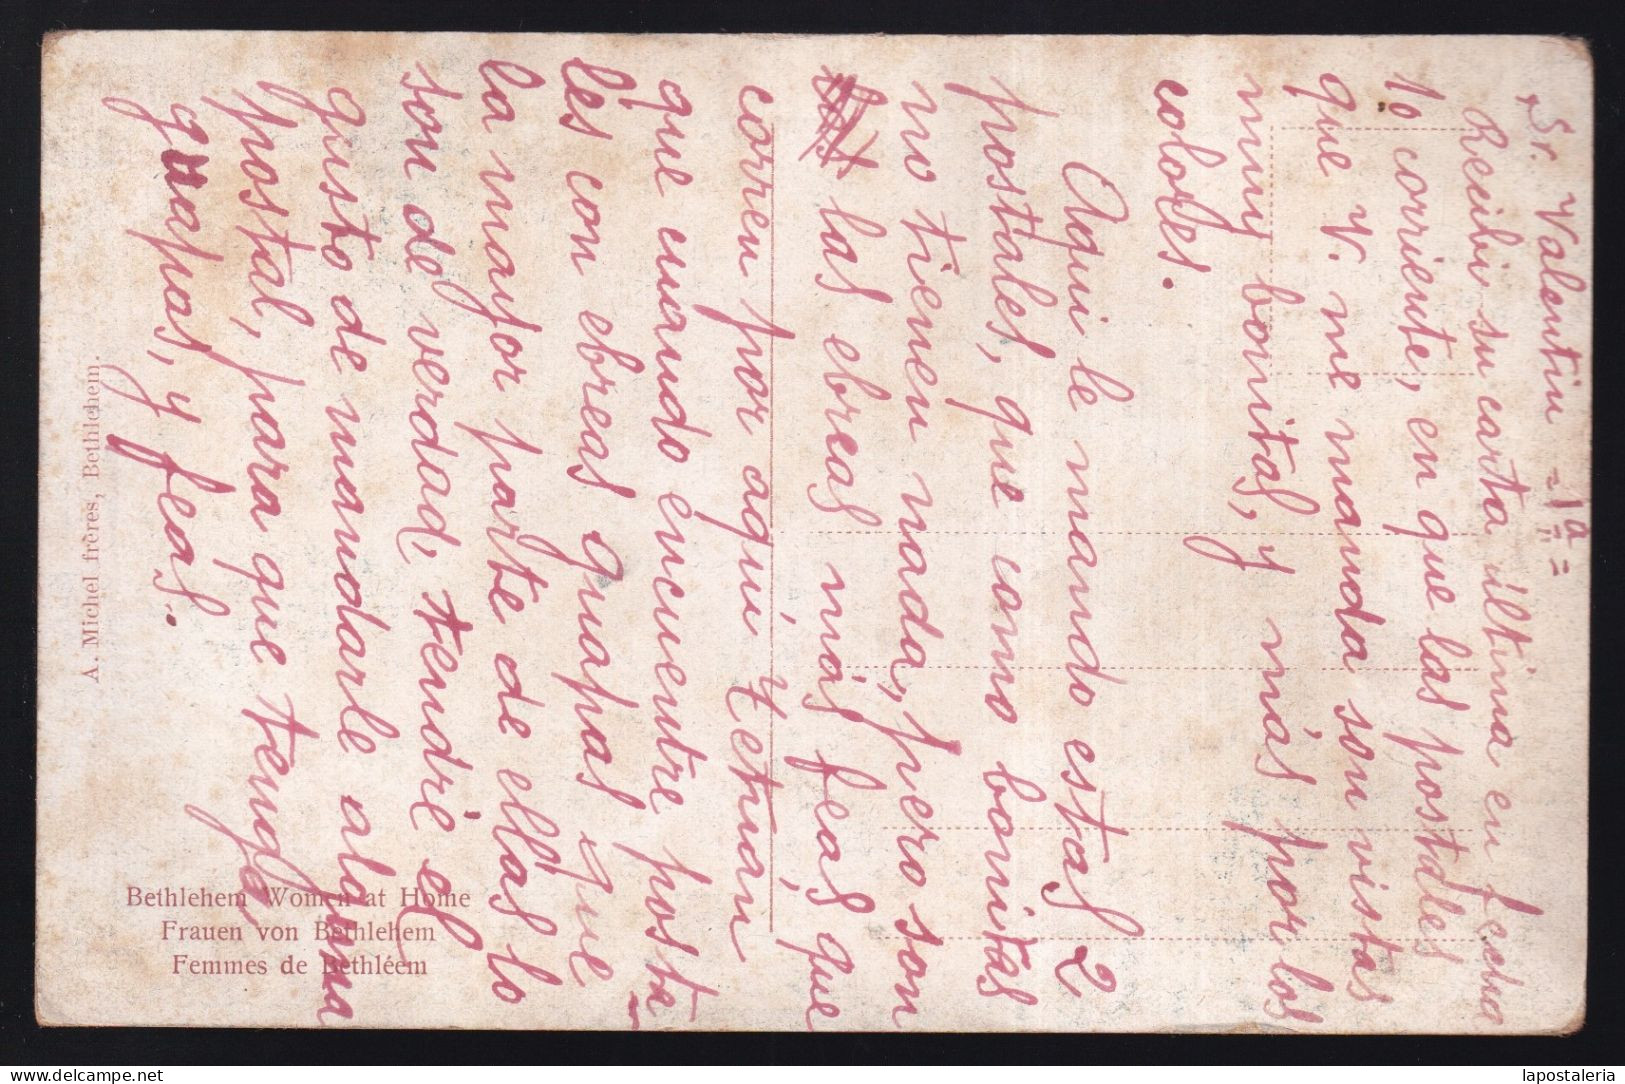 Sr. Valentin =1ª=
Recibi su carta última en fecha
10 corriente, en que las postales
que V. me manda son vistas
muy bonitas, y más por los
colores.
Aqui le mando estas 2
postales, que como bonitas
no tienen nada, pero son
las ebreas más feas, que
corren por aqui Tetuan
que cuando encuentre posta-
les con ebreas guapas que
la mayor parte de ellas lo
son de verdad, tendré el
gusto de mandarle alguna
postal, para que tenga,
guapas, y feas.
Bethlehem Women at Home
Frauen von Bethlehem
Femmes de Bethléem
A. Michel frères, Bethlehem.
delcampe.net
lapostaleria